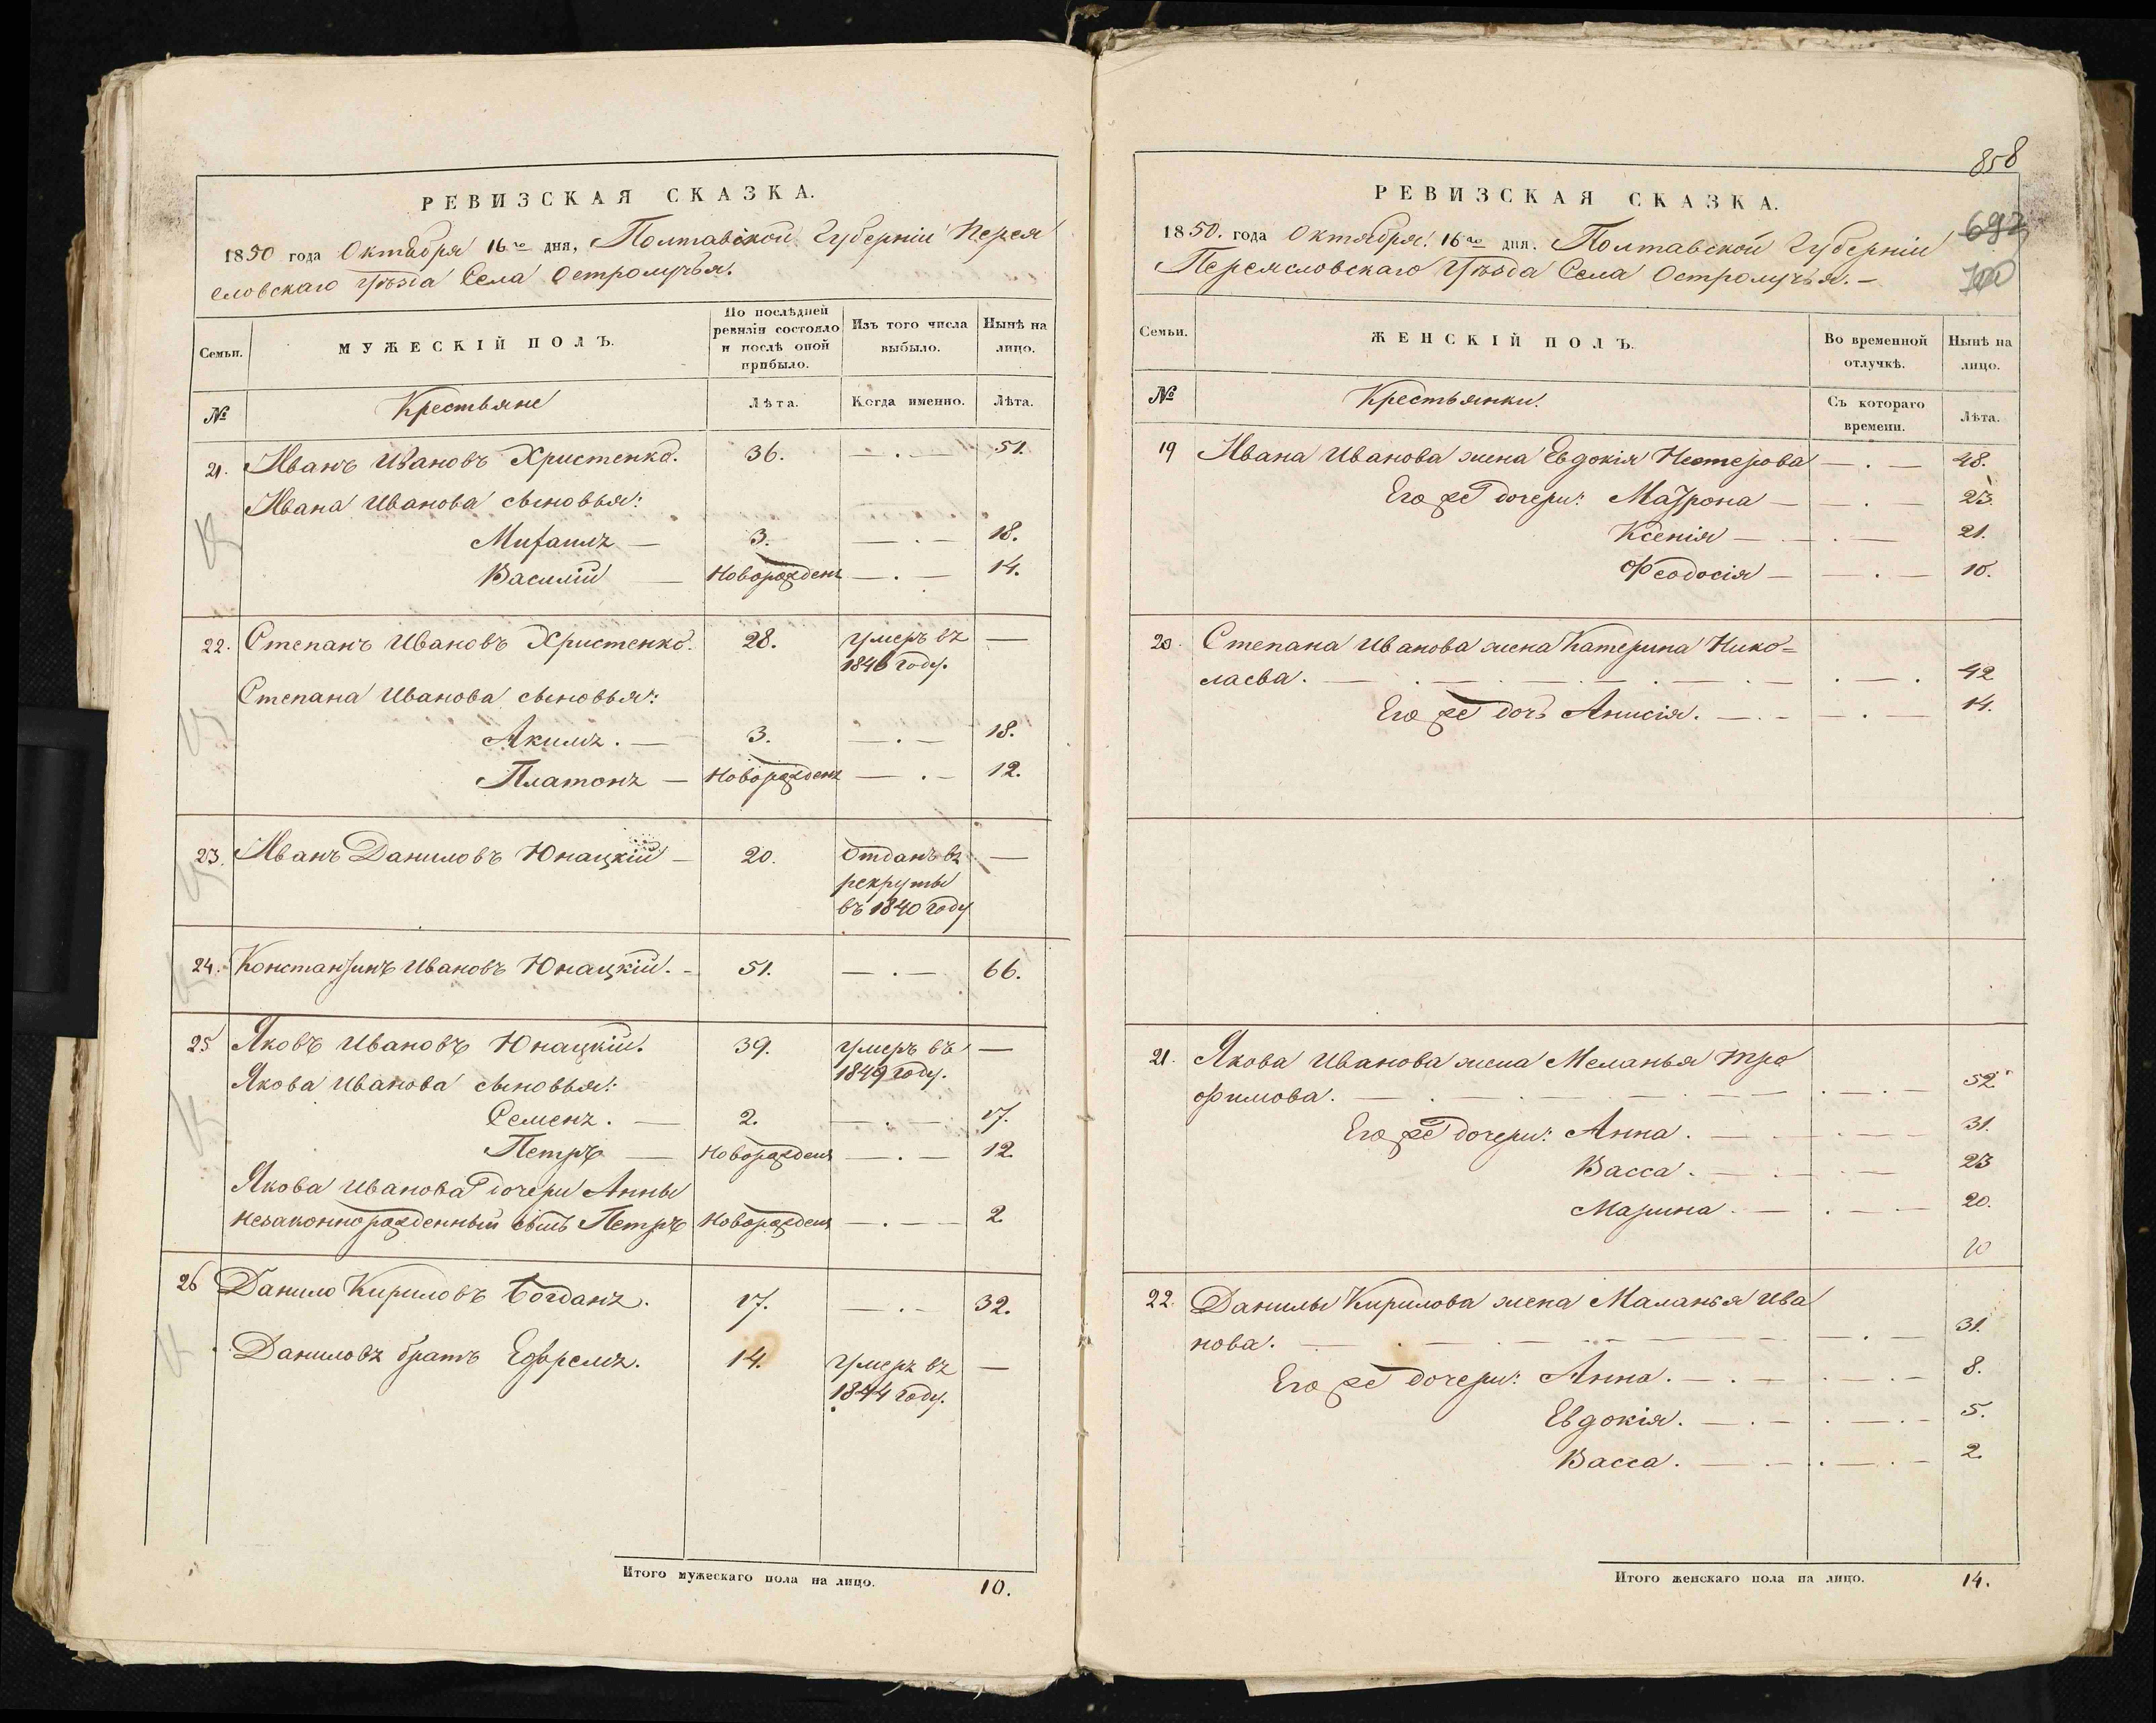 РЕВИЗСКАЯ СКАЗКА.
1850 года Октября 16го дня, Полтавской Губерніи Перея
словскаго Уѣзда Села Остролучья.
Семьи.
МУЖЕСКІЙ ПОЛЪ.
По послѣдней
ревизіи состояло
и послѣ оной
прибыло.
Изъ того числа
выбыло.
Нынѣ на
лицо.
№
Крестьяне
Лѣта.
Когда именно.
Лѣта.
21. Иванъ Ивановъ Христенко. 36. — . — 51.
Ивана Иванова сыновья:
Михаилъ — 3. — . — 18.
Василій — Новорожденъ — . — 14.
22. Степанъ Ивановъ Христенко. 28. умеръ въ —
1846 году.
Степана Иванова сыновья:
Акимъ. — 3. — . — 18.
Платонъ — Новорожденъ — . — 12.
23. Иванъ Даниловъ Юнацкій — 20. Отданъ въ —
рекруты
въ 1840 году
24. Константинъ Ивановъ Юнацкій. - 51. — . — 66.
25 Яковъ Ивановъ Юнацкій. 39. умеръ въ —
1849 году.
Якова Иванова сыновья:
Семенъ. — 2. — . — 17.
Петръ — Новорожденъ — . — 12.
Якова Иванова дочери Анны
незаконнорожденный сынъ Петръ Новорожденъ — . — 2.
26 Данило Кириловъ Богданъ. 17. — . — 32.
Даниловъ братъ Ефремъ. 14. Умеръ въ —
1844 году.
Итого мужескаго пола на лицо. 10.
858
692
РЕВИЗСКАЯ СКАЗКА.
1850. года Октября. 16го дня. Полтавской Губерніи
Переясловскаго Уѣзда Села Остролучья. —
Семьи.
ЖЕНСКІЙ ПОЛЪ.
Во временной
отлучкѣ.
Нынѣ на
лицо.
№
Крестьянки.
Съ котораго
времени.
Лѣта.
19 Ивана Иванова жена Евдокія Нестерова — . — 48.
Его же дочери: Матрона — — . — 23.
Ксенія — . — . — 21.
Феодосія — — . — 10.
20. Степана Иванова жена Катерина Нико=
лаева. — . — . — . — . — . — . 42
Его же дочь Анисія. — . - — . — 14.
21. Якова Иванова жена Меланья Тро
фимова. — . — . — . — . — . — 52.
Его же дочери: Анна. — . — . — 31.
Васса. — . — . — 23
Марина. — . — . — 20.
10
22. Данилы Кирилова жена Маланья Ива
нова. — . — . — . — . — 31.
Его же дочери: Анна. — . — . — . — 8.
Евдокія. — . — . — . — 5.
Васса. — . — . — . — 2.
Итого женскаго пола на лицо. 14.